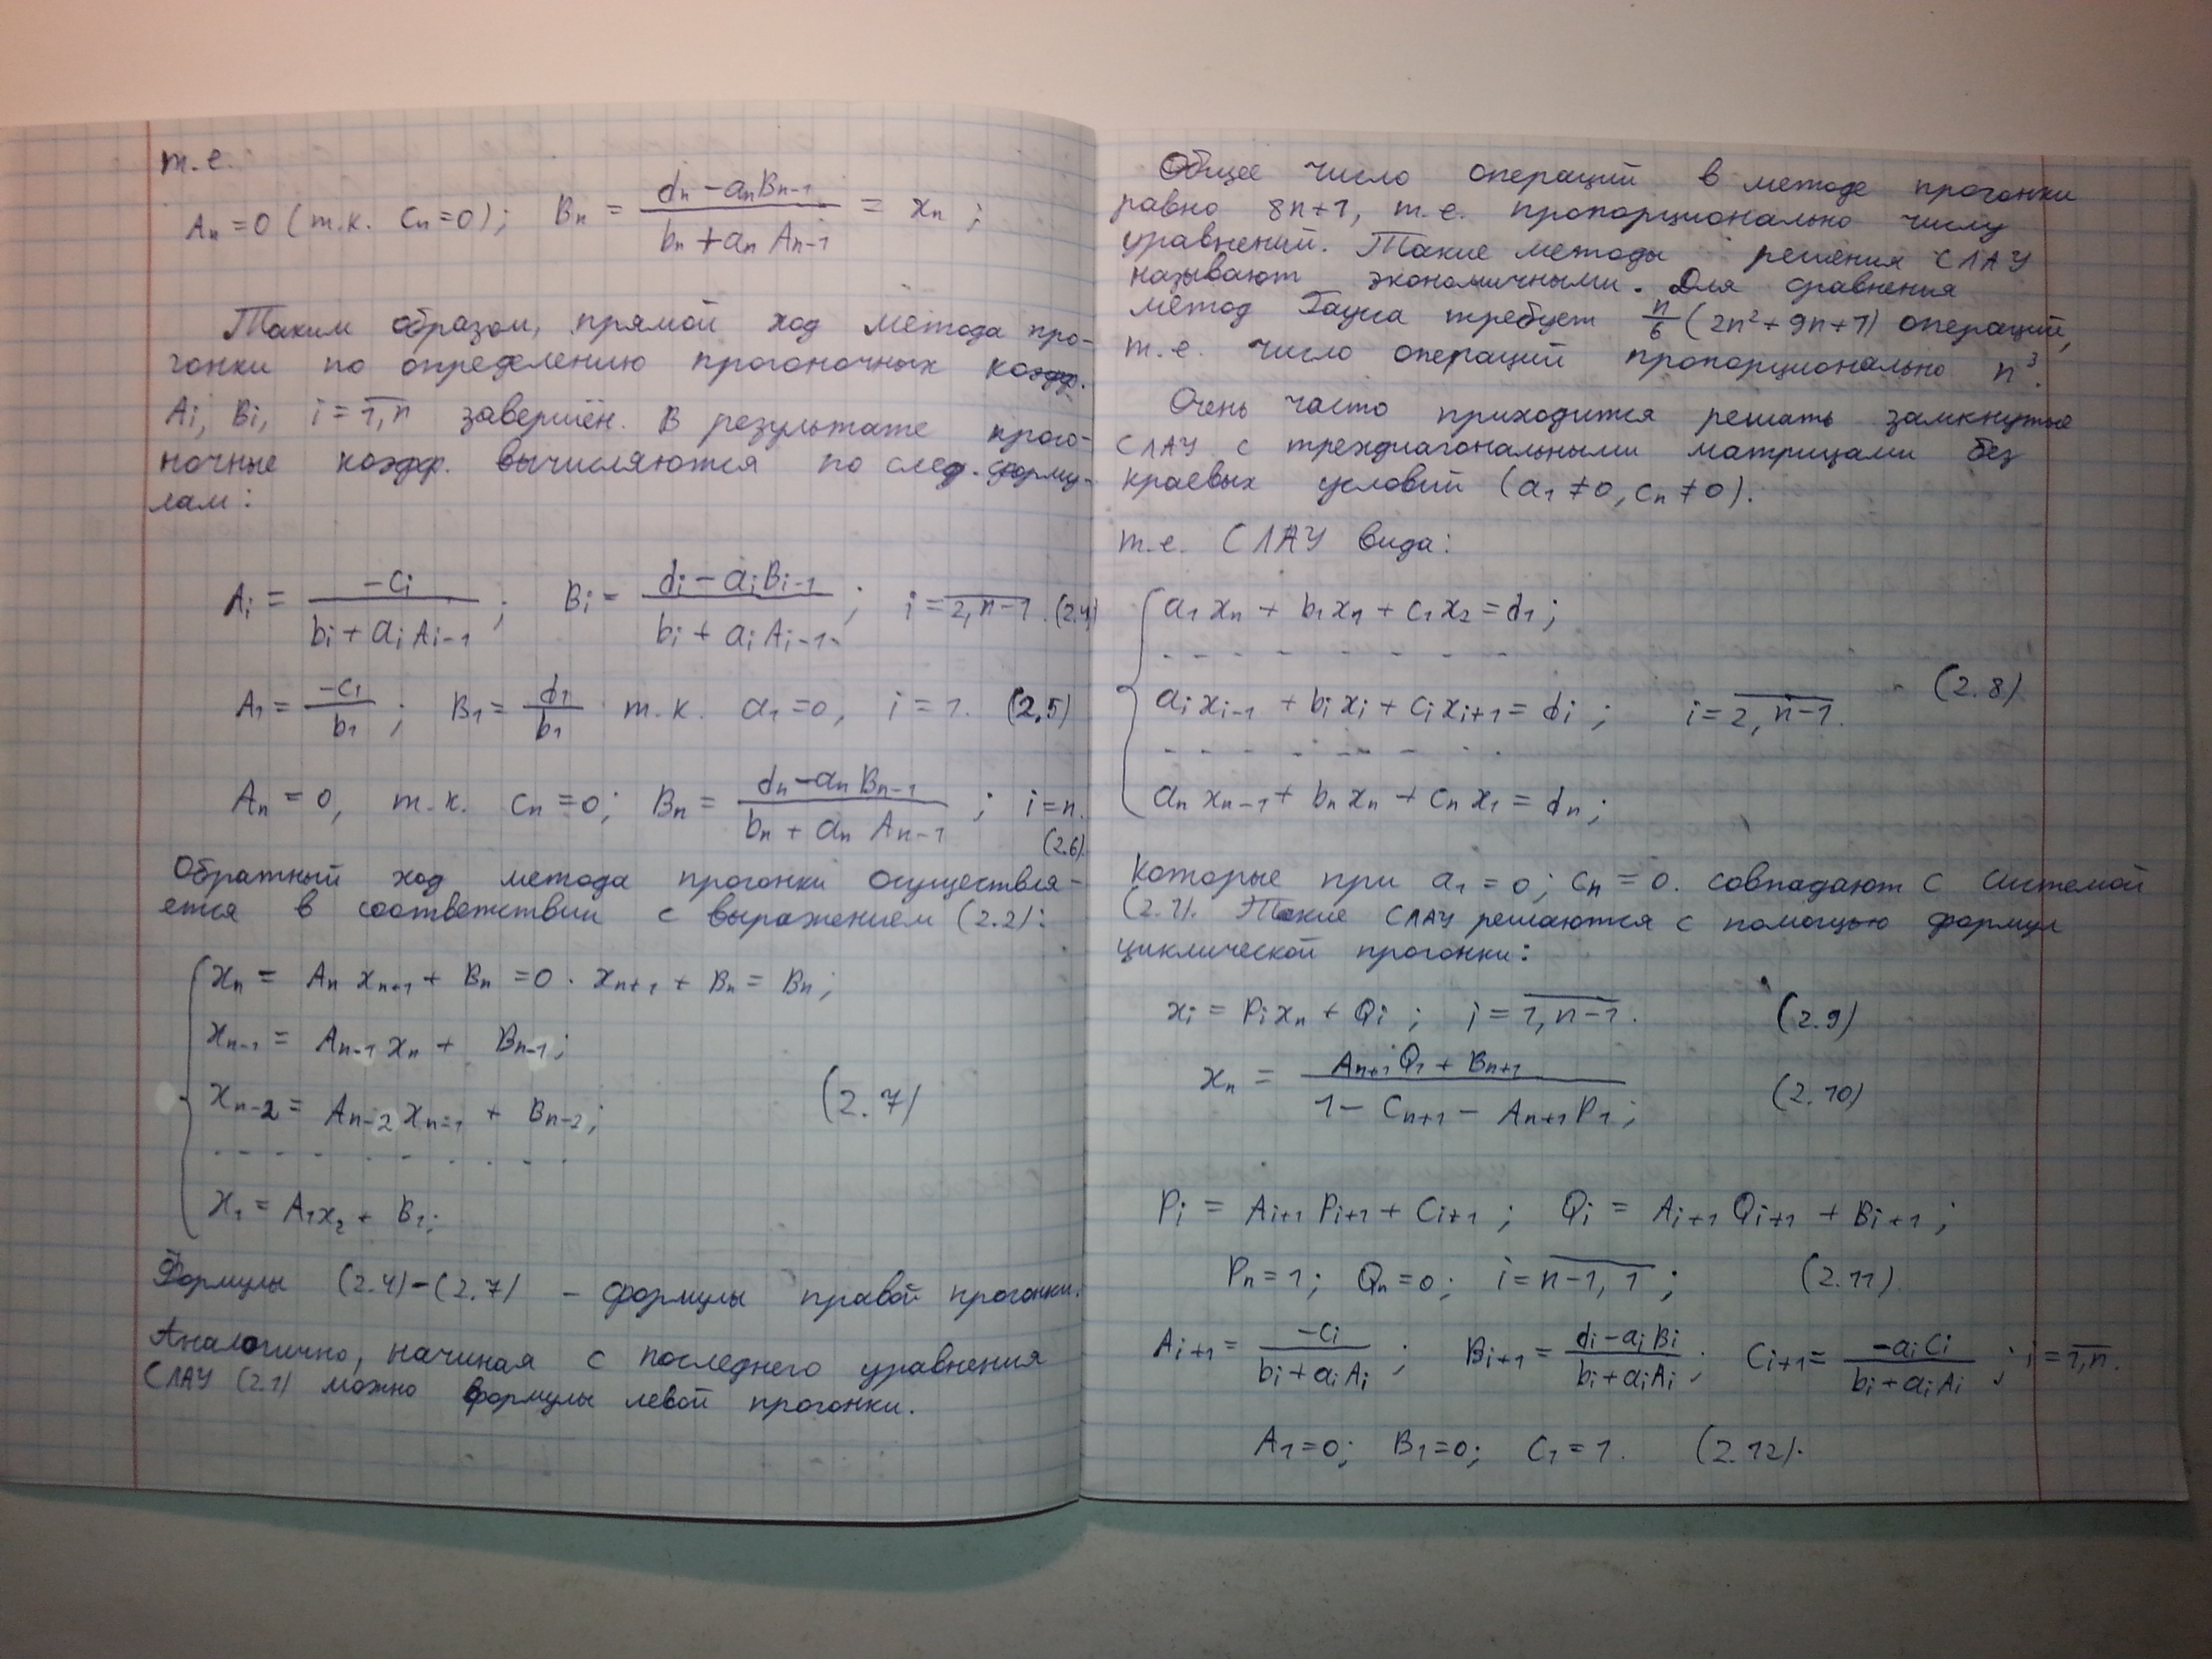 т.е.
Aₙ = 0 (т.к. cₙ = 0); Bₙ = (dₙ - aₙBₙ₋₁)/(bₙ + aₙAₙ₋₁) = xₙ;
Таким образом, прямой ход метода про-
гонки по определению прогоночных коэфф.
Ai, Bi, i = 1,n завершён. В результате прого-
ночные коэфф. вычисляются по след. форму-
лам:
Ai = -ci/(bi + aiAi-1); Bi = (di - aiBi-1)/(bi + aiAi-1); i = 2,n-1. (2.4)
A₁ = -c₁/b₁; B₁ = d₁/b₁ т.к. a₁ = 0, i = 1. (2.5)
Aₙ = 0, т.к. cₙ = 0; Bₙ = (dₙ - aₙBₙ₋₁)/(bₙ + aₙAₙ₋₁); i = n.
(2.6).
Обратный ход метода прогонки осуществля-
ется в соответствии с выражением (2.2):
xₙ = Aₙxₙ₊₁ + Bₙ = 0 · xₙ₊₁ + Bₙ = Bₙ;
xₙ₋₁ = Aₙ₋₁xₙ + Bₙ₋₁;
xₙ₋₂ = Aₙ₋₂xₙ₋₁ + Bₙ₋₂;
(2.7)
- - - - - - - - - - -
x₁ = A₁x₂ + B₁;
Формулы (2.4)-(2.7) - формулы правой прогонки.
Аналогично, начиная с последнего уравнения
СЛАУ (2.1) можно формулы левой прогонки.
Общее число операций в методе прогонки
равно 8n+1, т.е. пропорционально числу
уравнений. Такие методы решения СЛАУ
называют экономичными. Для сравнения
метод Гаусса требует n/6 (2n² + 9n + 1) операций,
т.е. число операций пропорционально n³.
Очень часто приходится решать замкнутые
СЛАУ с трехдиагональными матрицами без
краевых условий (a₁ ≠ 0, cₙ ≠ 0).
т.е. СЛАУ вида:
a₁xₙ + b₁x₁ + c₁x₂ = d₁;
- - - - - - - - - -
aixi-1 + bixi + cixi+1 = di; i = 2,n-1. (2.8)
- - - - - - - - - -
aₙxₙ₋₁ + bₙxₙ + cₙx₁ = dₙ;
Которые при a₁ = 0; cₙ = 0. совпадают с системой
(2.1). Такие СЛАУ решаются с помощью формул
циклической прогонки:
xi = Pixₙ + Qi; i = 1,n-1. (2.9)
xₙ = (Aₙ₊₁Q₁ + Bₙ₊₁)/(1 - Cₙ₊₁ - Aₙ₊₁P₁); (2.10)
Pi = Ai+1Pi+1 + Ci+1; Qi = Ai+1Qi+1 + Bi+1;
Pₙ = 1; Qₙ = 0; i = n-1,1; (2.11)
Ai+1 = -ci/(bi + aiAi); Bi+1 = (di - aiBi)/(bi + aiAi); Ci+1 = -aiCi/(bi + aiAi); i = 1,n.
A₁ = 0; B₁ = 0; C₁ = 1. (2.12).